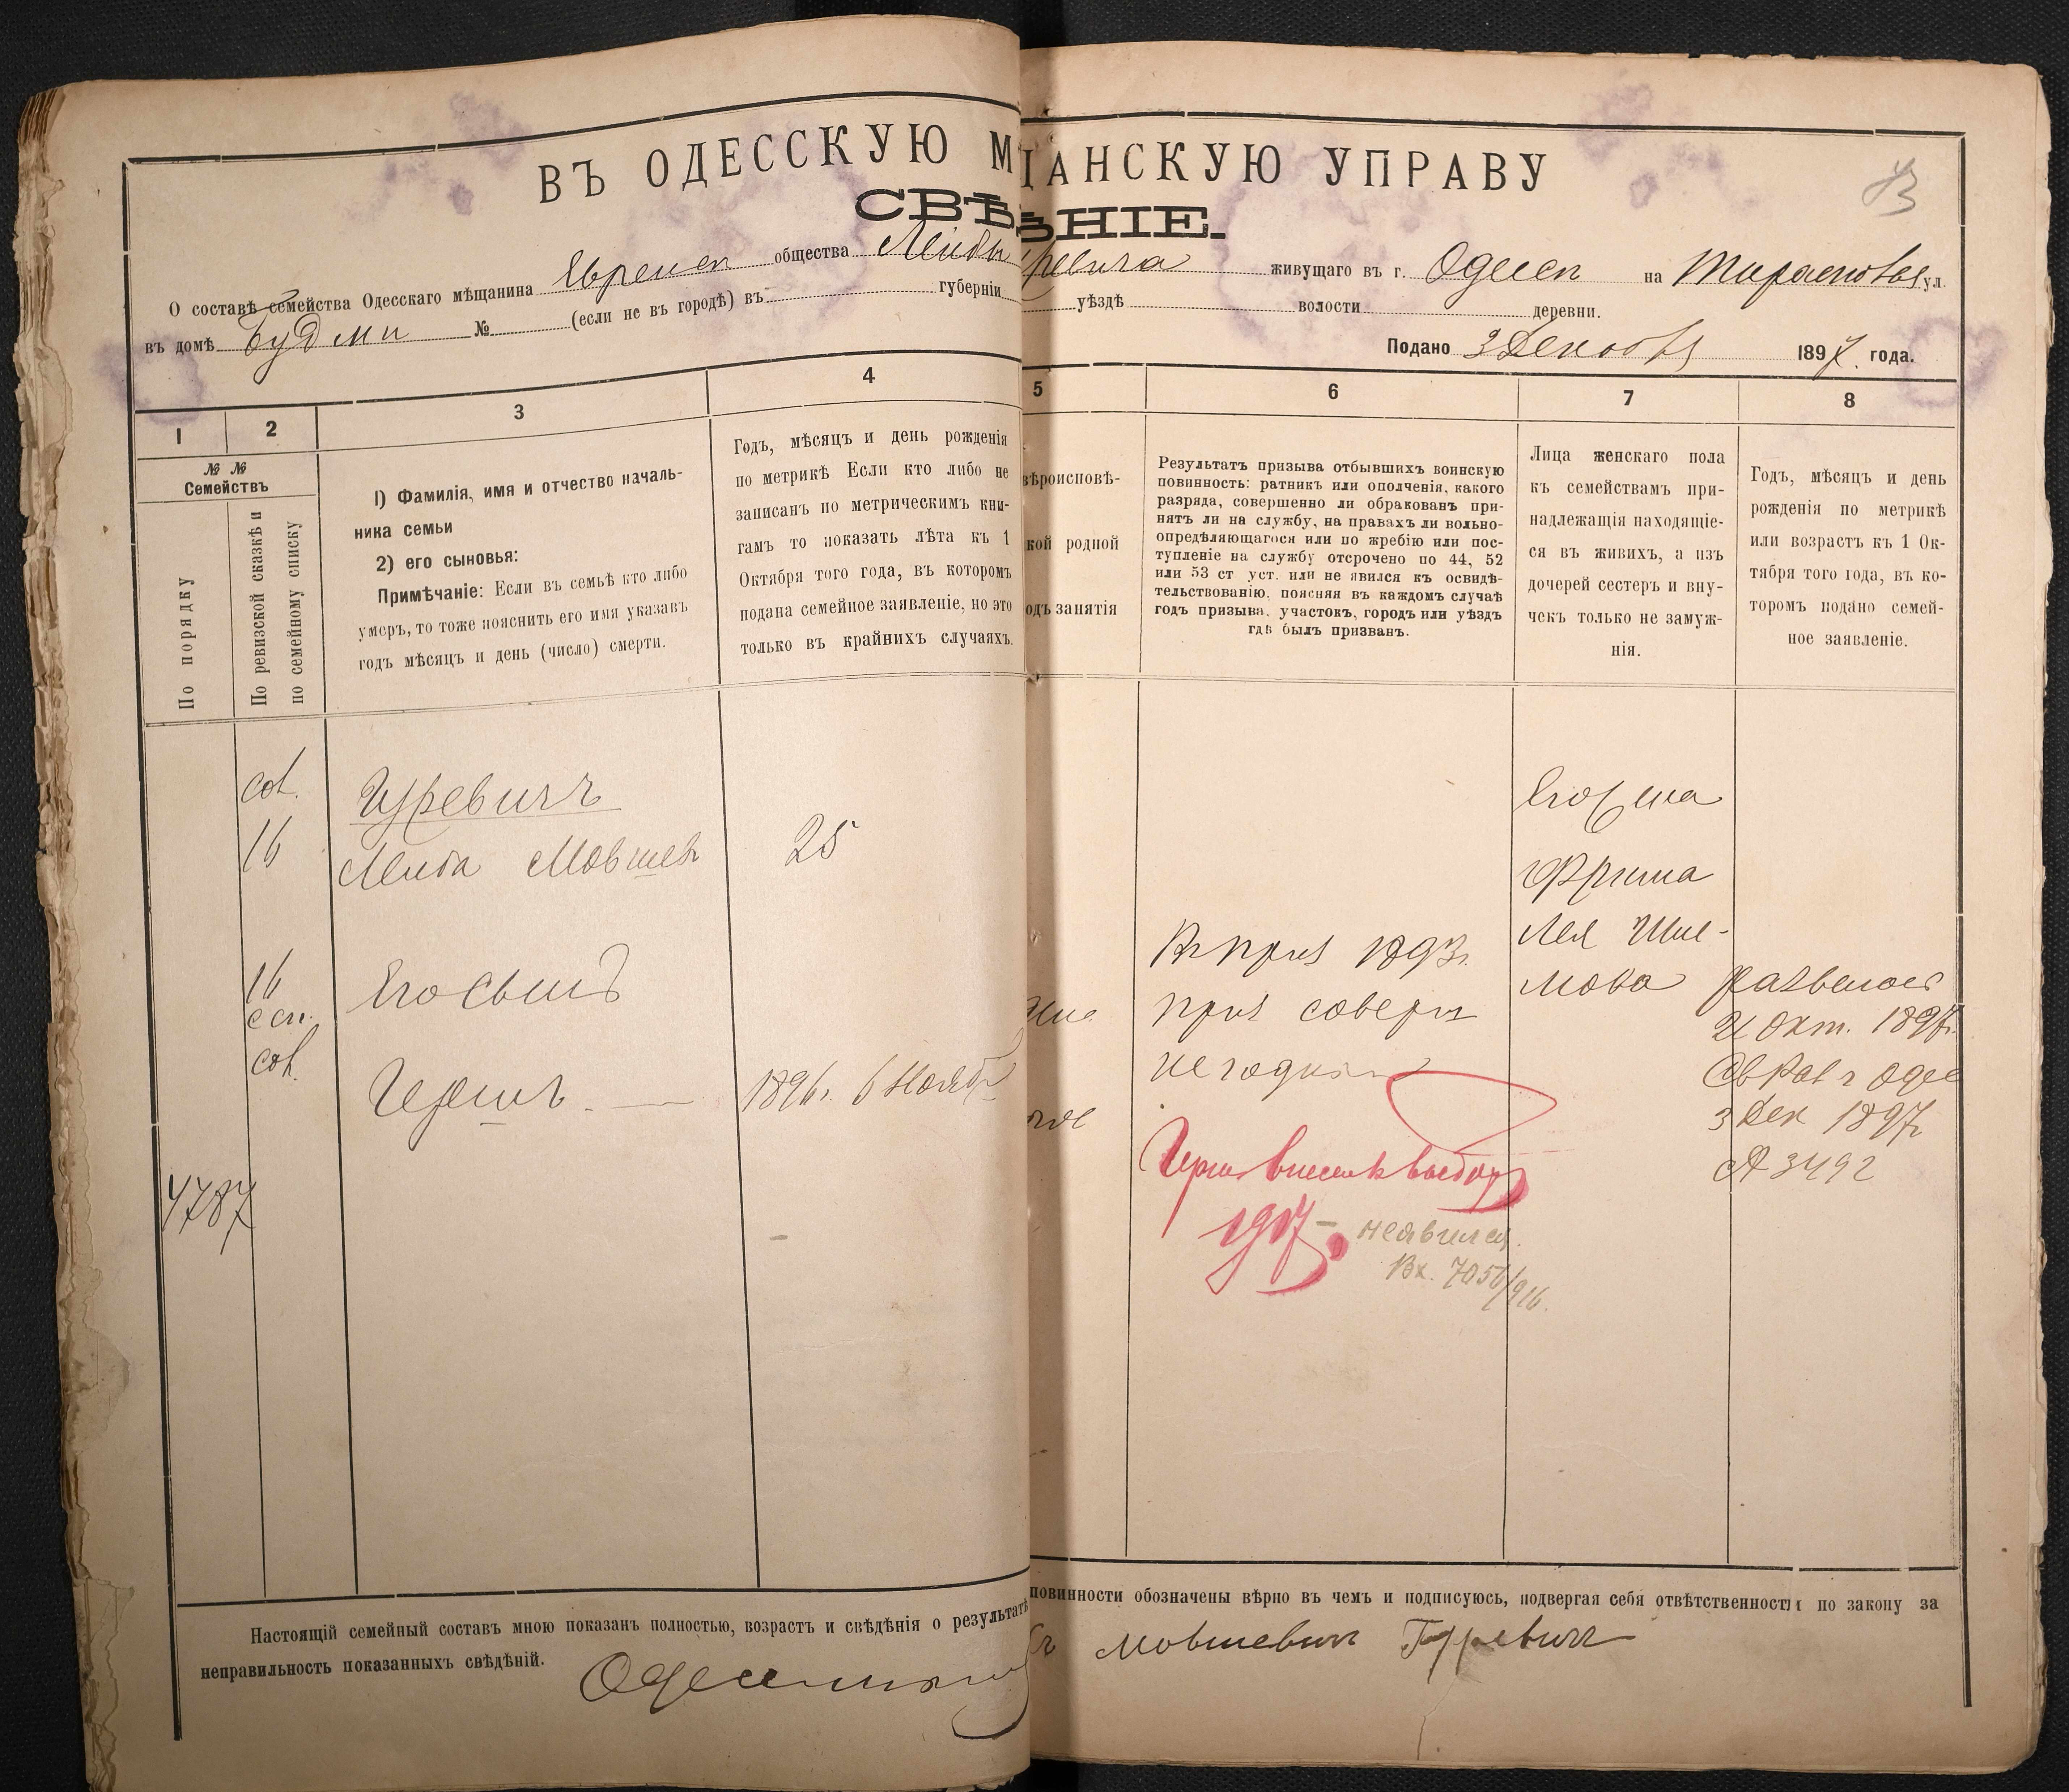 ВЪ ОДЕССКУЮ М
ЩАНСКУЮ УПРАВУ
СВѢ
ѢНІЕ.
О составѣ семейства Одесскаго мѣщанина Еврейск общества Лейбы
ревича живущаго въ г. Одессѣ на ул.
въ домѣ № (если не въ городѣ) въ губерніи
уѣздѣ волости деревни.
Подано 3 1897 года.
1
2
3
4
5
6
7
8
№ №
Семействъ
По порядку
По ревизской сказкѣ и
по семейному списку
1) Фамилія, имя и отчество началь-
ника семьи
2) его сыновья:
Примѣчаніе: Если въ семьѣ кто либо
умеръ, то тоже пояснить его имя указавъ
годъ мѣсяцъ и день (число) смерти.
Годъ, мѣсяцъ и день рожденія
по метрикѣ Если кто либо не
записанъ по метрическимъ кни-
гамъ то показать лѣта къ 1
Октября того года, въ которомъ
подана семейное заявленіе, но это
только въ крайнихъ случаяхъ.
вѣроисповѣ-
кой родной
одъ занятія
Результатъ призыва отбывшихъ воинскую
повинность: ратникъ или ополченія, какого
разряда, совершенно ли обракованъ при-
нятъ ли на службу, на правахъ ли вольно-
опредѣляющагося или по жребію или пос-
тупленіе на службу отсрочено по 44, 52
или 53 ст уст. или не явился къ освидѣ-
тельствованію, поясняя въ каждомъ случаѣ
годъ призыва, участокъ, городъ или уѣздъ
гдѣ былъ призванъ.
Лица женскаго пола
къ семействамъ при-
надлежащія находящіе-
ся въ живихъ, а изъ
дочерей сестеръ и вну-
чекъ только не замуж-
нія.
Годъ, мѣсяцъ и день
рожденія по метрикѣ
или возрастъ къ 1 Ок-
тября того года, въ ко-
торомъ подано семей-
ное заявленіе.
Гуревичъ
16 Лейба Мовшев 25
16
Гершъ 1896г. 6 Ноябр
4787
приз 1893г.
приз соверш
негодным
Герш внесен к
1917. – неявился.
Вх. 7056/916.
Его жена
Фрима
Лея Шле-
мова
21 Окт. 1897г.
Св Рав г Одес
3 Дек 1897г
№ 3492
Настоящій семейный составъ мною показанъ полностью, возрастъ и свѣдѣнія о результатѣ
повинности обозначены вѣрно въ чемъ и подписуюсь, подвергая себя отвѣтственности по закону за
неправильность показанныхъ свѣдѣній.
Мовшевичъ Гуревичъ